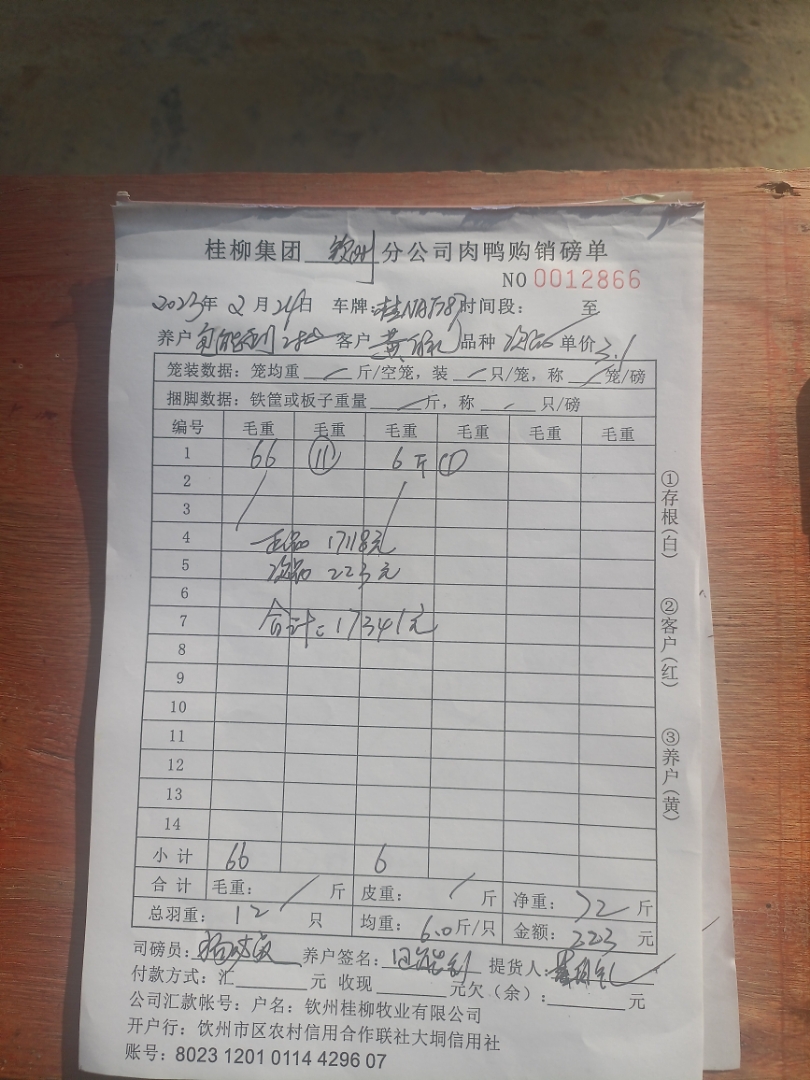 桂柳集团 钦州 分公司肉鸭购销磅单
NO 0012866
2023年 2月24日 车牌:桂 时间段: 至
养户 客户 黄 品种 次品 单价 3.1
笼装数据: 笼均重 斤/空笼, 装 只/笼, 称 笼/磅
捆脚数据: 铁筐或板子重量 斤, 称 只/磅
编号 毛重 毛重 毛重 毛重 毛重 毛重
1 66 ⑪ 6斤 ①
2
3
4 正品 17118元
5 次品 223元
6
7 合计: 17341元
8
9
10
11
12
13
14
小计 66 6
合计 毛重: 斤 皮重: 斤 净重: 72 斤
总羽重: 12 只 均重: 6.0斤/只 金额: 223 元
司磅员: 养户签名: 提货人:
付款方式: 汇 元 收现 元欠(余): 元
公司汇款帐号: 户名: 钦州桂柳牧业有限公司
开户行: 钦州市区农村信用合作联社大垌信用社
账号: 8023 1201 0114 4296 07
①存根(白)
②客户(红)
③养户(黄)